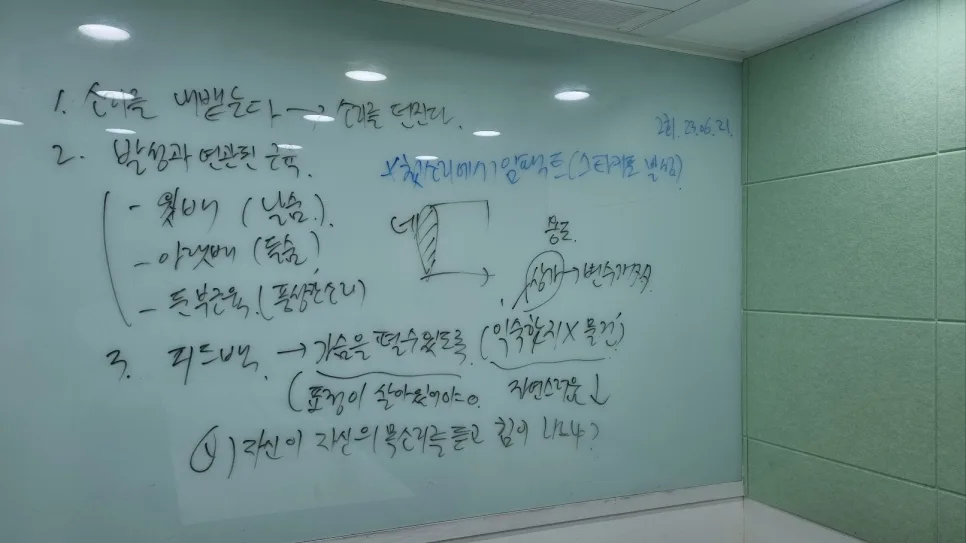 1. 소리를 내뱉는다 → 소리를 던진다.
2회. 23.06.21.
2. 발성과 연관된 근육.
*첫소리에서 임팩트(스타카토 발성)
- 윗배 (날숨)
- 아랫배 (들숨)
- 둔부근육. (풍성한소리)
네
용도.
상개→변수가
3. 피드백 → 가슴을 펼수있도록 (익숙한지X 물건)
(표정이 살아있어야 자연스러움↓
Q) 자신이 자신의 목소리를 듣고 힘이 나나?